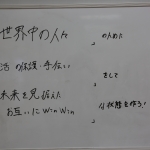 世界中の人々 のために
活の保護・手伝い をして
未来を見据えた
お互いにWinWin な状態を作る!